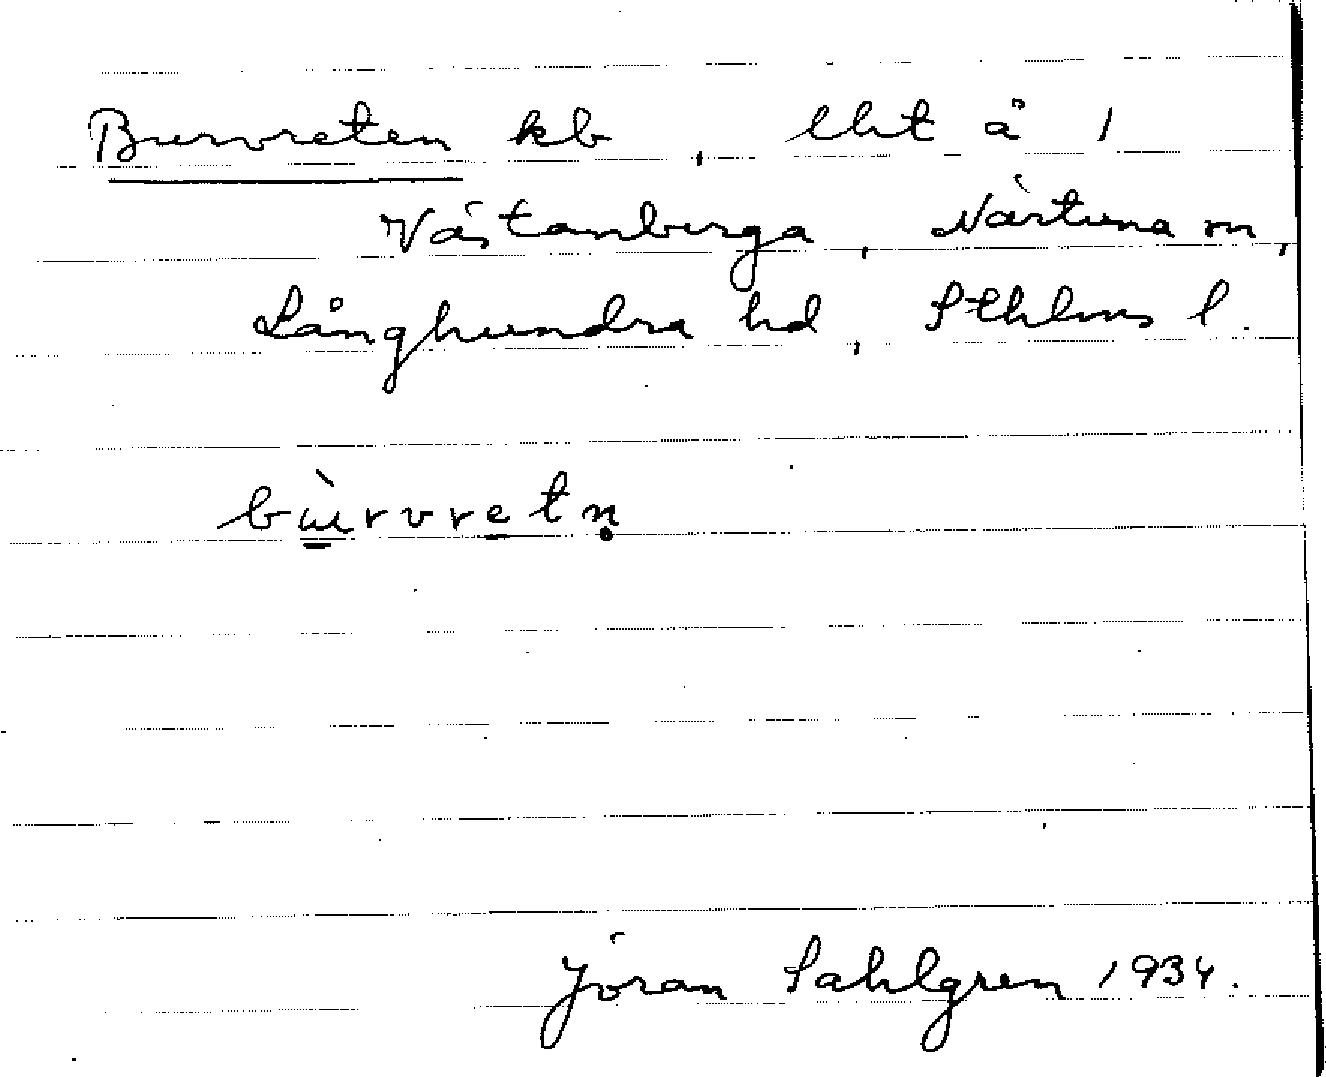 Burvreten kb, lht å 1
Västanberga, Närtuna sn,
Långhundra hd, Sthlms l.
bùrvretn̥
Jöran Sahlgren 1934.